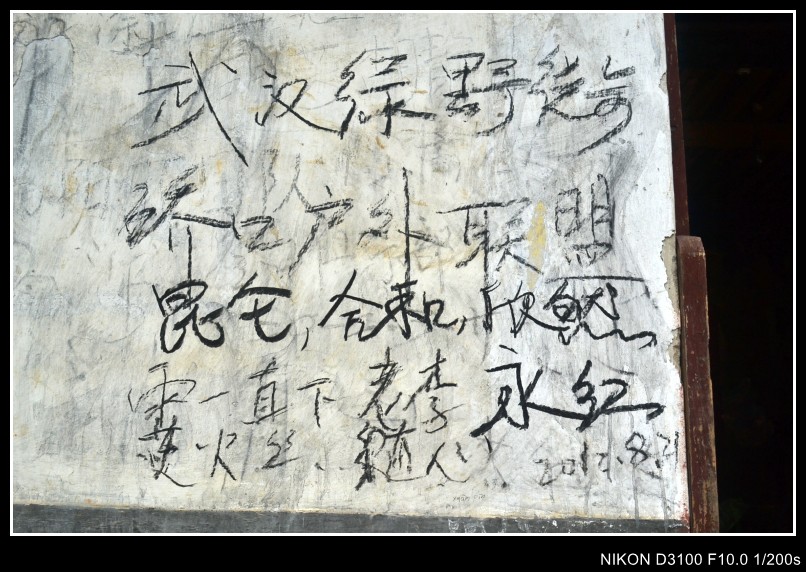 武汉绿野
硚口户外联盟
昆仑,合和,欣然
雨一直下 老李 永红
火 丝 随人 2012.8.21
NIKON D3100 F10.0 1/200s